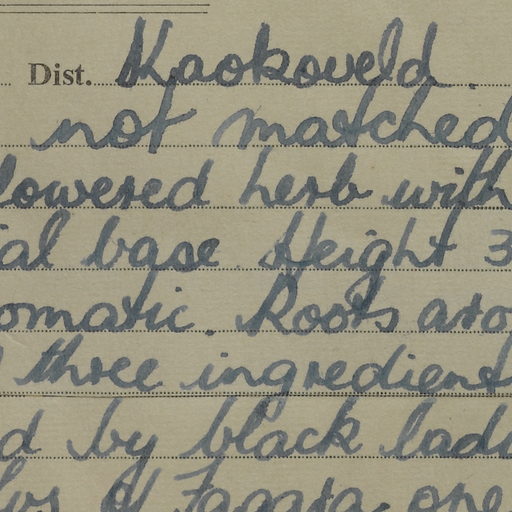 Dist. Kaokoveld.
not matched
lowered herb with
ial base. Height 3
omatic. Roots aro
three ingredient
d by black ladi
of Fagara, one